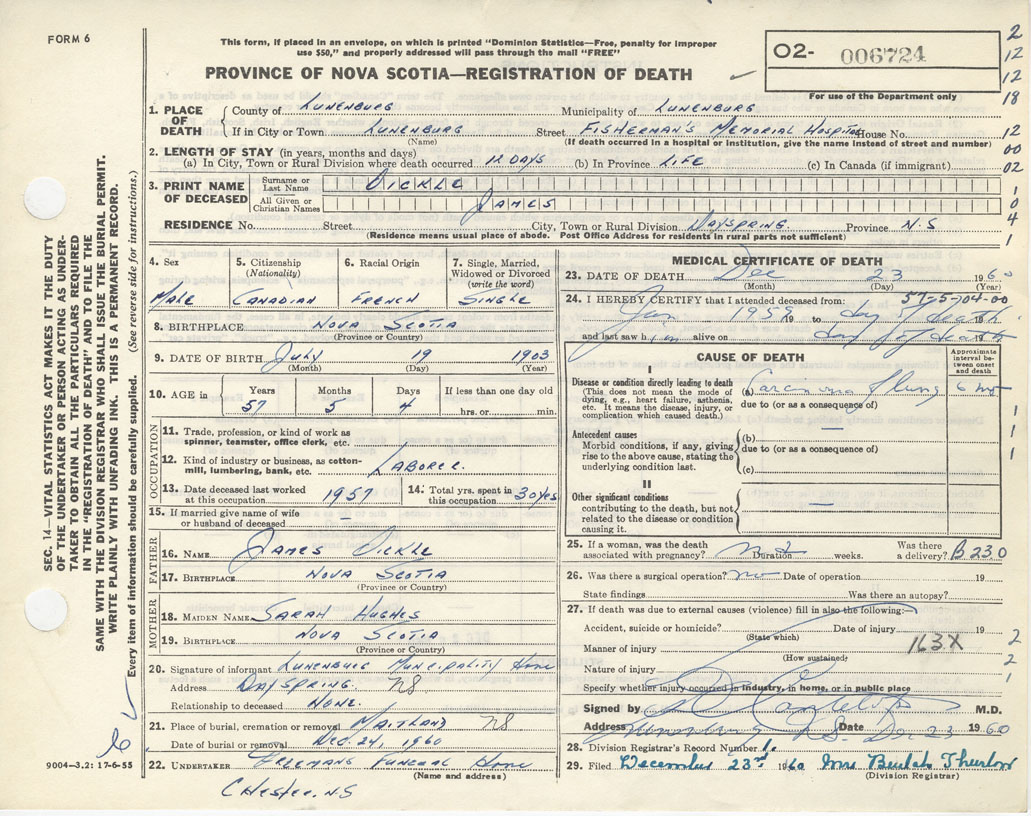 FORM 6
This form, if placed in an envelope, on which is printed "Dominion Statistics—Free, penalty for improper
use $50," and properly addressed will pass through the mail "FREE"
PROVINCE OF NOVA SCOTIA—REGISTRATION OF DEATH
02- 006724
For use of the Department only
2
12
12
18
12
00
02
1
0
4
1
1. PLACE OF DEATH
County of LUNENBURG Municipality of LUNENBURG
If in City or Town LUNENBURG Street FISHERMAN'S MEMORIAL HOSPITAL House No.
(Name) (If death occurred in a hospital or institution, give the name instead of street and number)
2. LENGTH OF STAY (in years, months and days)
(a) In City, Town or Rural Division where death occurred 12 DAYS (b) In Province LIFE (c) In Canada (if immigrant)
3. PRINT NAME OF DECEASED
Surname or Last Name DICKLE
All Given or Christian Names JAMES
RESIDENCE No. Street City, Town or Rural Division DAYSPRING Province N.S
(Residence means usual place of abode. Post Office Address for residents in rural parts not sufficient)
4. Sex
MALE
5. Citizenship (Nationality)
CANADIAN
6. Racial Origin
FRENCH
7. Single, Married, Widowed or Divorced (write the word)
SINGLE
8. BIRTHPLACE NOVA SCOTIA
(Province or Country)
9. DATE OF BIRTH July 19 1903
(Month) (Day) (Year)
10. AGE in
Years Months Days If less than one day old
57 5 4 hrs. or min.
OCCUPATION
11. Trade, profession, or kind of work as
spinner, teamster, office clerk, etc.
12. Kind of industry or business, as cotton-
mill, lumbering, bank, etc. LABORER.
13. Date deceased last worked
at this occupation 1957
14. Total yrs. spent in
this occupation 30 yrs
15. If married give name of wife
or husband of deceased —
FATHER
16. NAME JAMES DICKLE
17. BIRTHPLACE NOVA SCOTIA
(Province or Country)
MOTHER
18. MAIDEN NAME SARAH HUGHES
19. BIRTHPLACE NOVA SCOTIA
(Province or Country)
20. Signature of informant LUNENBURG MUNICIPALITY HOME
Address DAYSPRING. NS
Relationship to deceased NONE.
21. Place of burial, cremation or removal MAITLAND NS
Date of burial or removal Dec. 24, 1960
22. UNDERTAKER FREEMANS FUNERAL HOME
(Name and address)
CHESTER, N.S
MEDICAL CERTIFICATE OF DEATH
23. DATE OF DEATH Dec 23 1960
(Month) (Day) (Year)
57-5-04-00
24. I HEREBY CERTIFY that I attended deceased from:
Jan 1959 19 to day of death 19
and last saw him alive on day of death 19
CAUSE OF DEATH
Approximate interval between onset and death
I
Disease or condition directly leading to death
(This does not mean the mode of dying, e.g., heart failure, asthenia, etc. It means the disease, injury, or complication which caused death.)
(a) Carcinoma of lung 6 mo
due to (or as a consequence of)
Antecedent causes
Morbid conditions, if any, giving rise to the above cause, stating the underlying condition last.
(b) —
due to (or as a consequence of)
(c)
II
Other significant conditions
contributing to the death, but not related to the disease or condition causing it.
—
1
1
1
1
25. If a woman, was the death
associated with pregnancy? Duration weeks. Was there a delivery? B 230
26. Was there a surgical operation? no Date of operation 19
State findings Was there an autopsy?
27. If death was due to external causes (violence) fill in also the following:—
Accident, suicide or homicide? Date of injury 19
(State which)
Manner of injury 163X
(How sustained)
Nature of injury
Specify whether injury occurred in industry, in home, or in public place
2
2
1
Signed by M.D.
Address N.S. Date Dec 23 1960
28. Division Registrar's Record Number
29. Filed December 23rd 1960 Mrs Beulah Thurlow
(Division Registrar)
SEC. 14—VITAL STATISTICS ACT MAKES IT THE DUTY
OF THE UNDERTAKER OR PERSON ACTING AS UNDER-
TAKER TO OBTAIN ALL THE PARTICULARS REQUIRED
IN THE "REGISTRATION OF DEATH" AND TO FILE THE
SAME WITH THE DIVISION REGISTRAR WHO SHALL ISSUE THE BURIAL PERMIT.
WRITE PLAINLY WITH UNFADING INK. THIS IS A PERMANENT RECORD.
Every item of information should be carefully supplied. (See reverse side for instructions.)
9004—3.2: 17-6-55